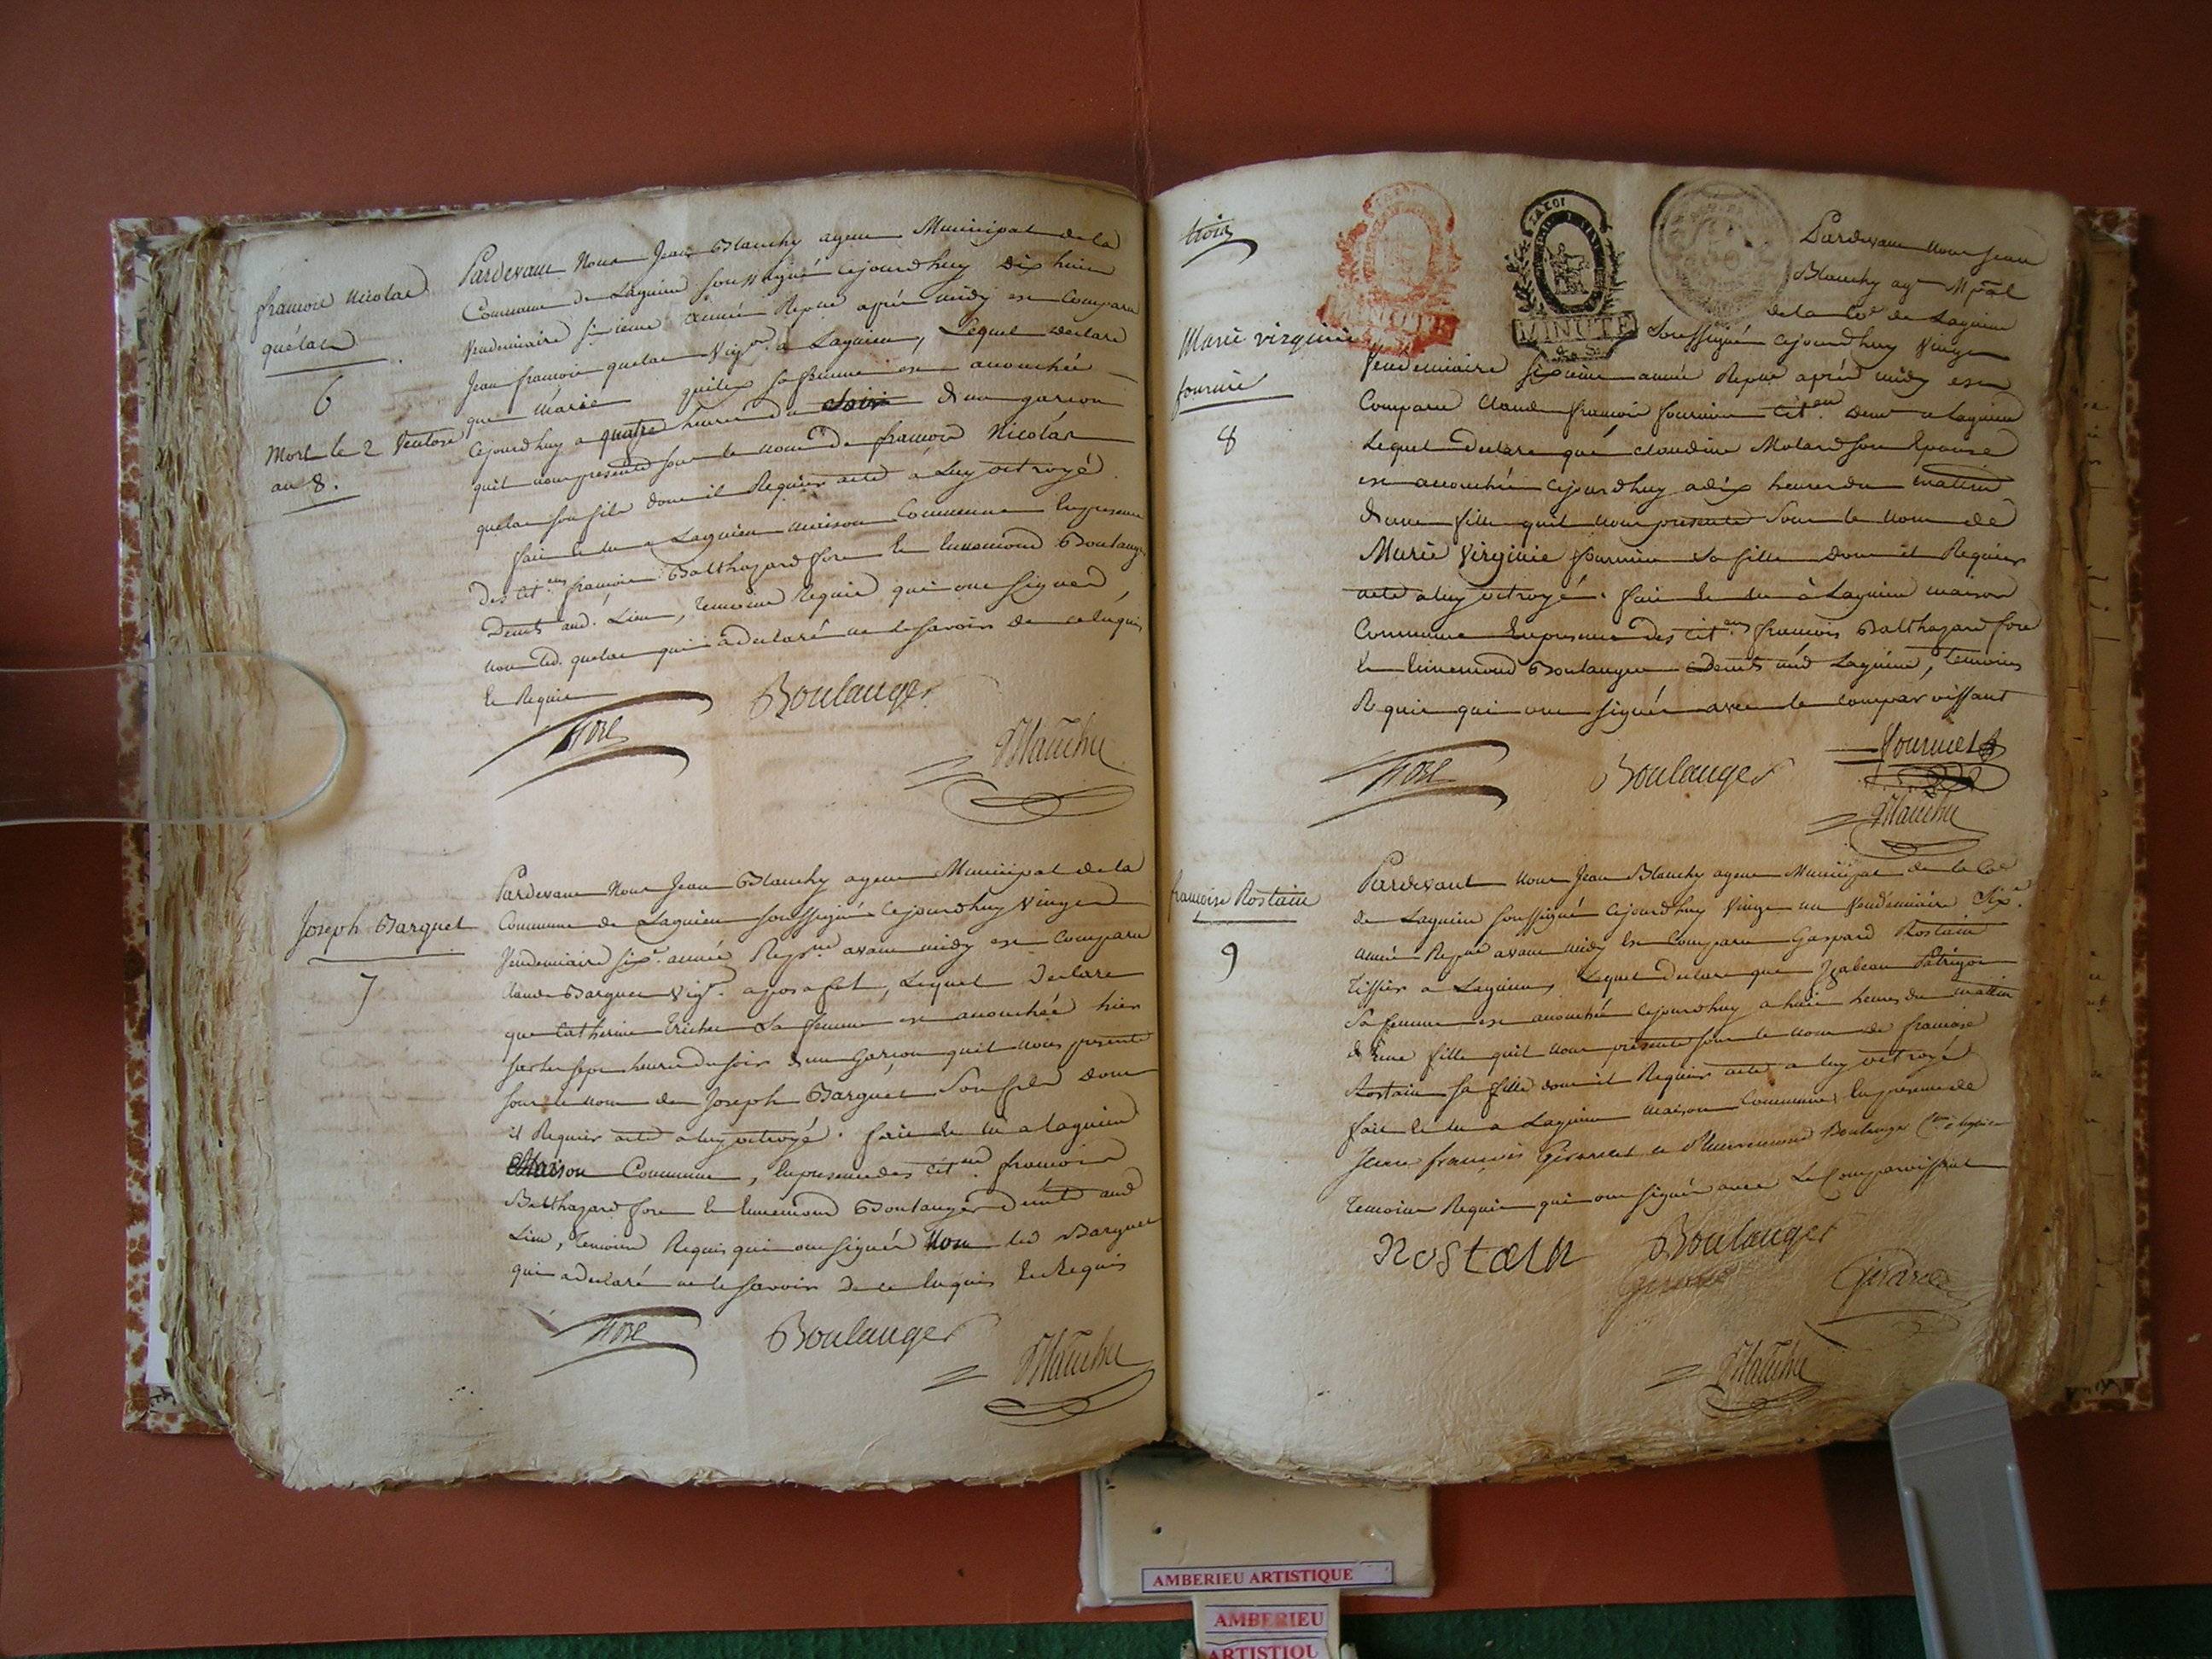 françois nicolas
quélan
6
Mort le 2 Ventose
an 8.
Pardevant Nous Jean Blanchy agent Municipal de la
Commune de Lagnieu soussigné cejourdhuy dix huit
Vendemiaire sixieme année Repue après midy est Comparu
Jean françois quelan Vigr. a Lagnieu, Lequel declare
que Marie sa femme est accouchée
cejourdhuy a quatre heures du soir d'un garcon
quil nous presente sous le nom de françois Nicolas
quelan son fils dont il Requier acte a Luy octroyé
fait et lu a Lagnieu maison Commune En presence
des cit.ens françois Balthazard fore et Ennemond Boulanger
Demts aud. Lieu, temoins Requis qui ont signés
non led. quelan qui a declaré ne le savoir de ce enquis
et Requis
fore
Boulanger
Blanchy
Joseph Barquet
7
Pardevant Nous Jean Blanchy agent Municipal de la
Commune de Lagnieu soussigné cejourdhuy Vingt
Vendemiaire sixe. année Repne avant midy est Comparu
Claude Barquet Vigr. a posafol, Lequel Declare
que Catherine Trichon sa femme est accouchée hier
sur les sept heures du soir d'un Garçon quil nous presente
sous le nom de Joseph Barquet son fils dont
il Requier acte a luy octroyé. fait et lu a lagnieu
Maison Commune, En presence des citens françois
Balthazard fore et Ennemond Boulanger Demts aud
Lieu, temoins Requis qui ont signés Non led Barquet
qui a declaré ne le savoir de ce Enquis et Requis
fore
Boulanger
Blanchy
trois
MINUTE
MINUTE
Marie virginie
fournier
8
Pardevant Nous Jean
Blanchy agt Mpal
de la Coe de Lagnieu
Soussigné cejourdhuy Vingt
Vendemiaire sixieme année Repue après midy est
Comparu Claude françois fournier citen Demt a Lagnieu
Lequel declare que claudine Molard son Epouse
est accouchée cejourdhuy a dix heures du matin
d'une fille quil nous presente sous le nom de
Marie Virginie fournier sa fille dont il Requier
acte a luy octroyé. fait et lu à Lagnieu maison
Commune En presence des citens françois Balthazard fore
et Ennemond Boulanger Demts aud Lagnieu, temoins
Requis qui ont signés avec le comparoissant
fore
Boulanger
fournier
Blanchy
françoise Rostain
9
Pardevant nous Jean Blanchy agent Municipal de la Coe
de Lagnieu soussigné cejourdhuy Vingt un Vendemiaire Sixe.
année Repue avant midy Est Comparu Gaspard Rostain
tissier a Lagnieu, Lequel Declare que Izabeau
sa femme est accouchée cejourdhuy a huit heures du matin
d'une fille quil nous presente sous le nom de françoise
Rostain sa fille dont il Requier acte a luy octroyé
fait et lu a Lagnieu maison Commune, En presence de
Jean françois Girardet et d'Ennemond Boulanger
temoins Requis qui ont signés avec Le Comparoissant
Rostain
Boulanger
Blanchy
AMBERIEU ARTISTIQUE
AMBERIEU
ARTISTIQU